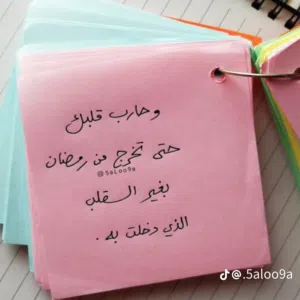 وحارب قلبك
حتى تخرج من رمضان
@5aLoo9a
بغير القلب
الذي دخلت به .
@.5aloo9a